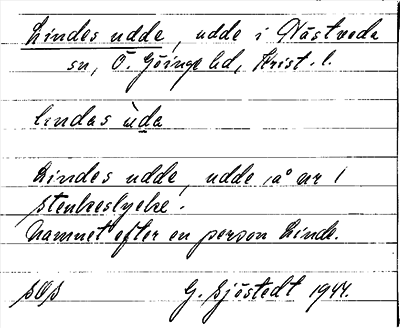 Lindes udde, udde i Nästveda
sn, Ö. Göinge hd, Krist. l.
lindas ùda
Lindes udde, udde på nr 1
Stenkeslycke.
Namnet efter en person Linde.
SOS G. Sjöstedt 1944.